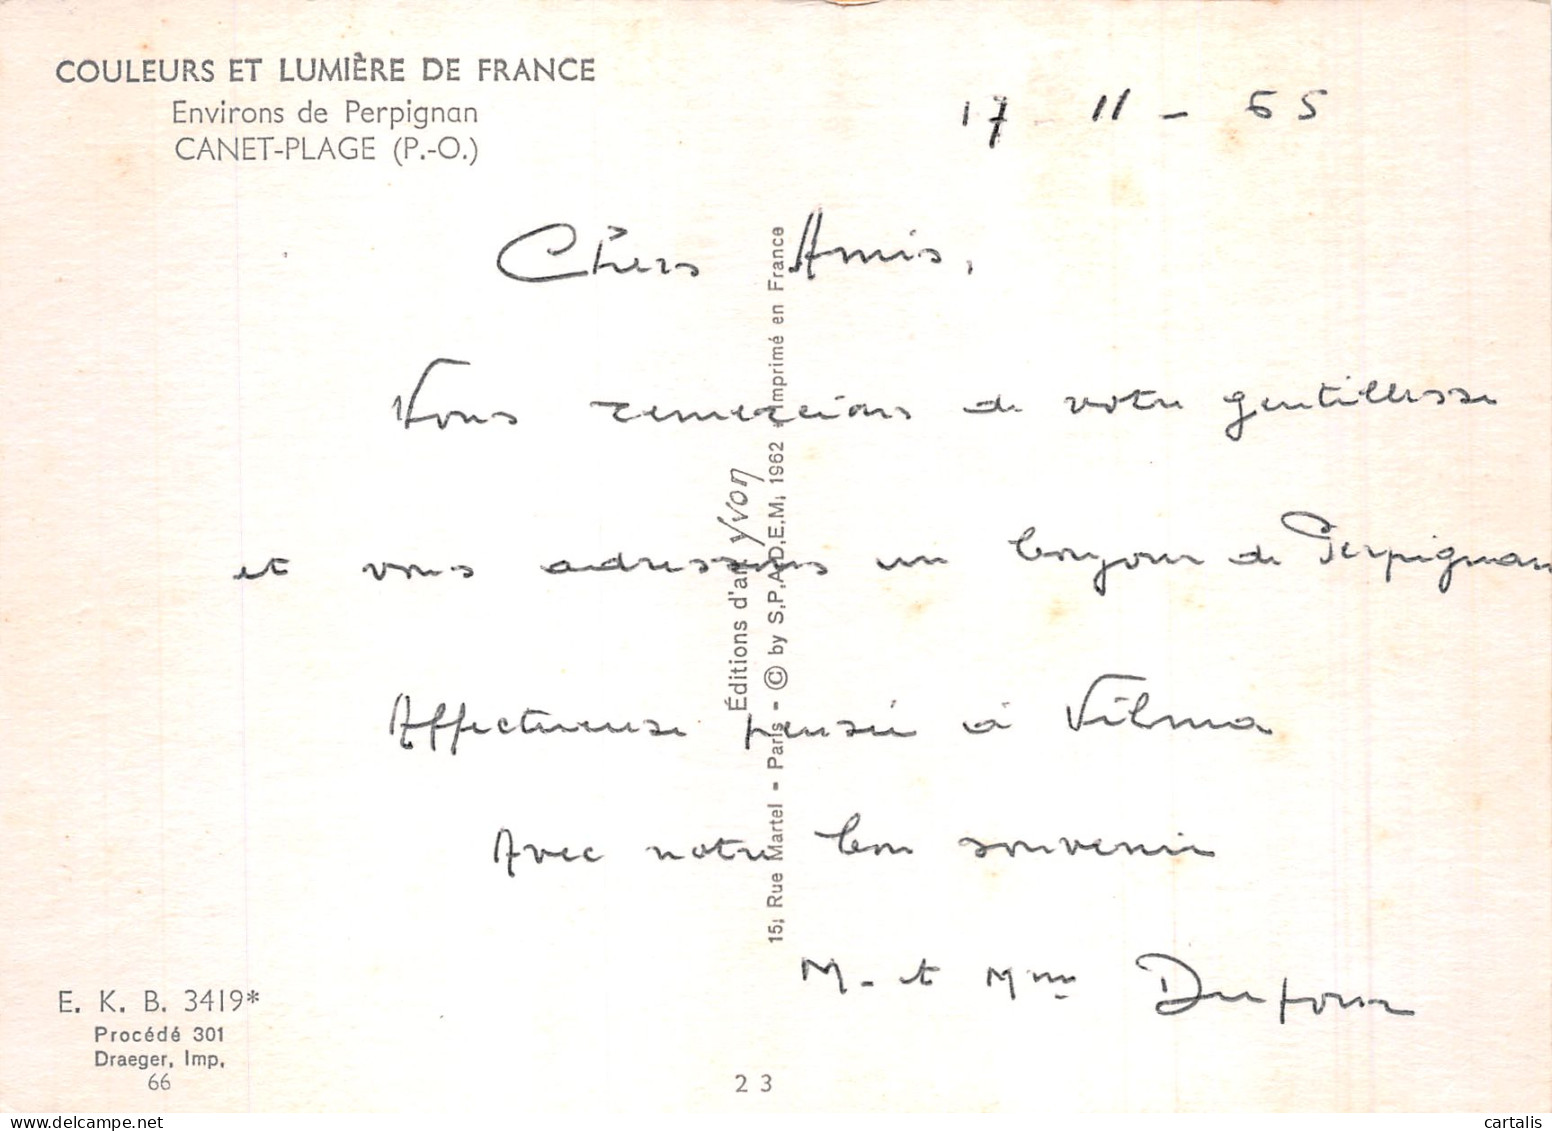 COULEURS ET LUMIÈRE DE FRANCE
Environs de Perpignan
CANET-PLAGE (P.-O.)
17 - 11 - 65
Chers Amis,
Vous remercions de votre gentillesse
et vous adressons un bonjour de Perpignan
Affectueuse pensée à Vilma
Avec notre bon souvenir
M. et Mme Dufour
Éditions d'art Yvon
15, Rue Martel - Paris - © by S.P.A.D.E.M. 1962 - Imprimé en France
E. K. B. 3419*
Procédé 301
Draeger, Imp.
66
23
cartalis